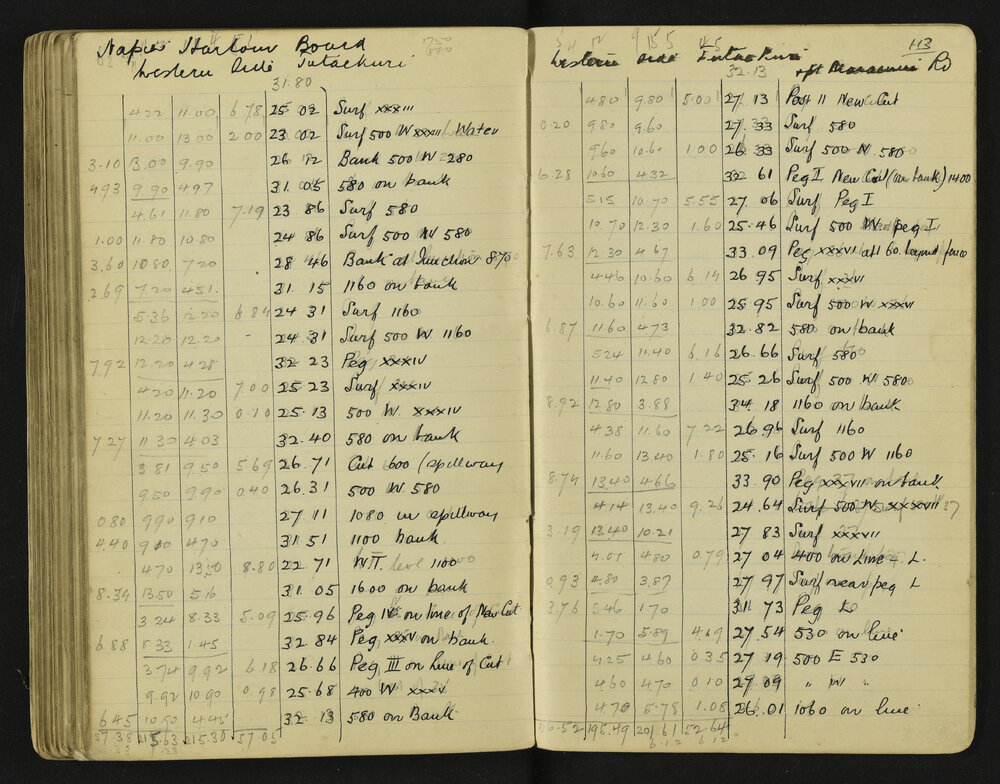 Napier Harbour Board
Western Side Tutaekuri
31.80
4.22 11.00 6.78 25 02 Surf xxxiii
11.00 13.00 2.00 23 02 Surf 500 W xxxiii Water
3.10 13.00 9.90 26 12 Bank 500 W 280
4.93 9.90 4.97 31 05 580 on bank
4.61 11.80 7.19 23 86 Surf 580
1.00 11.80 10.80 24 86 Surf 500 W 580
3.60 10.80 7.20 28 46 Bank at Junction 870
2.69 7.20 4.51 31 15 1160 on bank
5.36 12.20 6.84 24 31 Surf 1160
12.20 12.20 - 24 31 Surf 500 W 1160
7.92 12.20 4.28 32 23 Peg xxxiv
4.20 11.20 7.00 25 23 Surf xxxiv
11.20 11.30 0.10 25.13 500 W xxxiv
7.27 11.30 4.03 32.40 580 on bank
3.81 9.50 5.69 26.71 Cut 600 (spillway
9.50 9.90 0.40 26.31 500 W 580
0.80 9.90 9.10 27 11 1080 in spillway
4.40 9.10 4.70 31.51 1100 bank
4.70 13.50 8.80 22.71 W.T. level 1100
8.34 13.50 5.16 31.05 1600 on bank
3.24 8.33 5.09 25.96 Peg IV on line of New Cut
6.88 8.33 1.45 32.84 Peg xxxv on bank
3.74 9.92 6.18 26.66 Peg III on line of Cut
9.92 10.90 0.98 25.68 400 W xxxv
6.45 10.90 4.45 32.13 580 on Bank
57.38 215.63 215.30 57.05
113
Western Side Tutaekuri
Rd
32.13
4.80 9.80 5.00 27 13 Post II New Cut
0.20 9.80 9.60 27 33 Surf 580
9.60 10.60 1.00 26 33 Surf 500 W 580
6.28 10.60 4.32 32 61 Peg I New Cut (on bank) 1400
5.15 10.70 5.55 27 06 Surf Peg I
10.70 12.30 1.60 25.46 Surf 500 W peg I
7.63 12.30 4.67 33 09 Peg xxxvi at 60 beyond fence
4.46 10.60 6.14 26 95 Surf xxxvi
10.60 11.60 1.00 25 95 Surf 500 W xxxvi
6.87 11.60 4.73 32.82 580 on bank
5.24 11.40 6.16 26.66 Surf 580
11.40 12.80 1.40 25 26 Surf 500 W 580
8.92 12.80 3.88 34 18 1160 on bank
4.38 11.60 7.22 26.96 Surf 1160
11.60 13.40 1.80 25.16 Surf 500 W 1160
8.74 13.40 4.66 33.90 Peg xxxvii on bank
4.14 13.40 9.26 24.64 Surf 500 W xxxvii
3.19 13.40 10.21 27 83 Surf xxxvii
4.01 4.80 0.79 27 04 400 on Line L
0.93 4.80 3.87 27 97 Surf near peg L
3.76 5.46 1.70 31 73 Peg L
1.70 5.89 4.19 27.54 530 on line
4.25 4.60 0.35 27 19 500 E 530
4.60 4.70 0.10 27.09 " W "
4.70 5.78 1.08 26.01 1060 on line
46.52 195.49 201.61 52.64
6.12 6.12